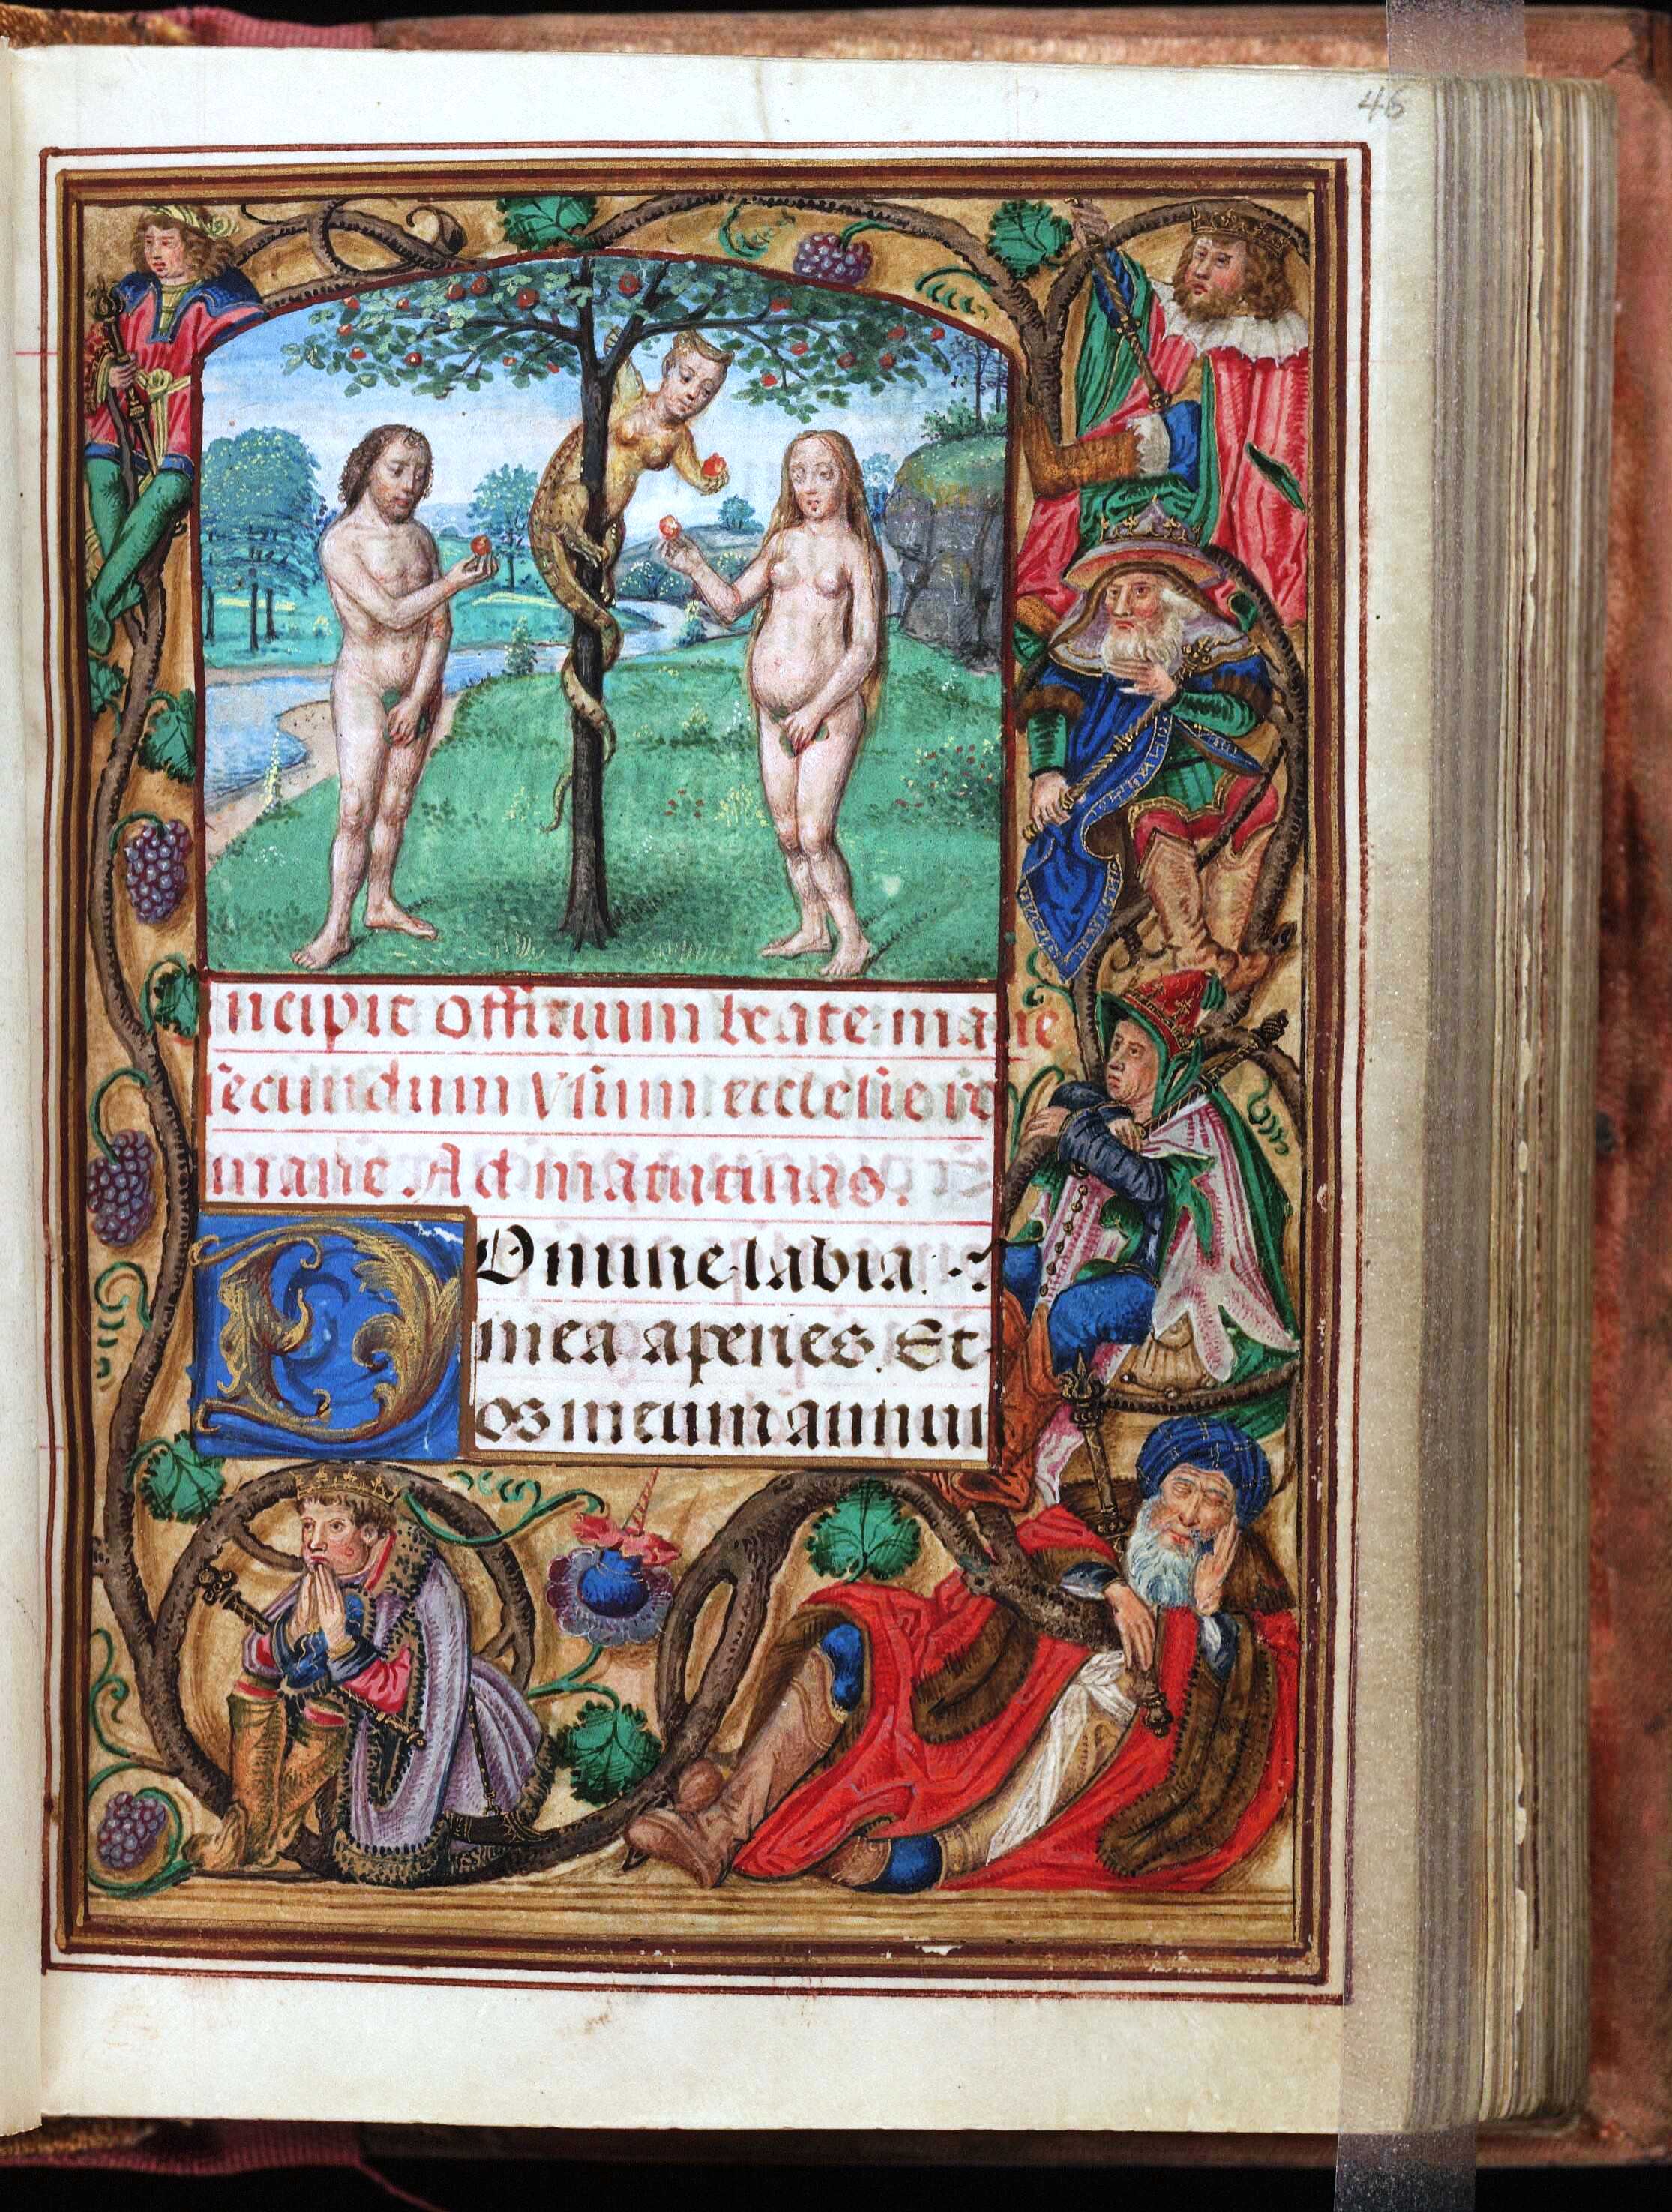 46
ncipit offitium beate marie
secundum vsum ecclesie ro
mane Ad matutinas.
Omine labia
mea aperies. Et
os meum annun